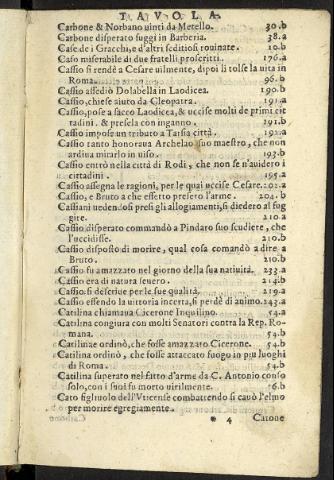 TAVOLA
Carbone & Norbano uinti da Metello. 30.b
Carbone disperato fuggì in Barberia. 38.a
Case de i Gracchi, e d'altri seditiosi rouinate. 10.b
Caso miserabile di due fratelli proscritti. 176.a
Cassio si rendè a Cesare uilmente, dipoi li tolse la uita in
Roma. 96.b
Cassio assediò Dolabella in Laodicea. 190.b
Cassio, chiese aiuto da Cleopatra. 191.a
Cassio, pose a sacco Laodicea, & uccise molti de primi cit
tadini. & presela con inganno. 191.b
Cassio impose un tributo a Tarsia città. 192.a
Cassio tanto honoraua Archelao suo maestro, che non
ardiua mirarlo in uiso. 193.b
Cassio entrò nella città di Rodi, che non se n'auidero i
cittadini. 195.a
Cassio assegna le ragioni, per le quai uccise Cesare. 202.a
Cassio, e Bruto a che effetto presero l'arme. 204.b
Cassiani uedendosi presi gli allogiamenti, si diedero al fug
gire. 210.a
Cassio disperato commandò a Pindaro suo scudiere, che
l'uccidisse. 210.b
Cassio disposto di morire, qual cosa comandò a dire a
Bruto. 210.b
Cassio fu amazzato nel giorno della sua natiuità. 233.a
Cassio era di natura seuero. 214.b
Cassio si descriue per le sue qualità. 219.a
Cassio essendo la uittoria incerta, si perdè di animo. 243.a
Catilina chiamaua Cicerone Inquilino. 54.a
Catilina congiura con molti Senatori contra la Rep. Ro-
mana. 54.b
Catilinae ordinò, che fosse amazzato Cicerone. 54.b
Catilina ordinò, che fosse attaccato fuogo in piu luoghi
di Roma. 54.b
Catilina superato nel fatto d'arme da C. Antonio conso
solo, con i suoi fu morto uirilmente. 6.b
Cato figliuolo dell'Vticense combattendo si cauò l'elmo
per morire egregiamente.
* 4 Catone